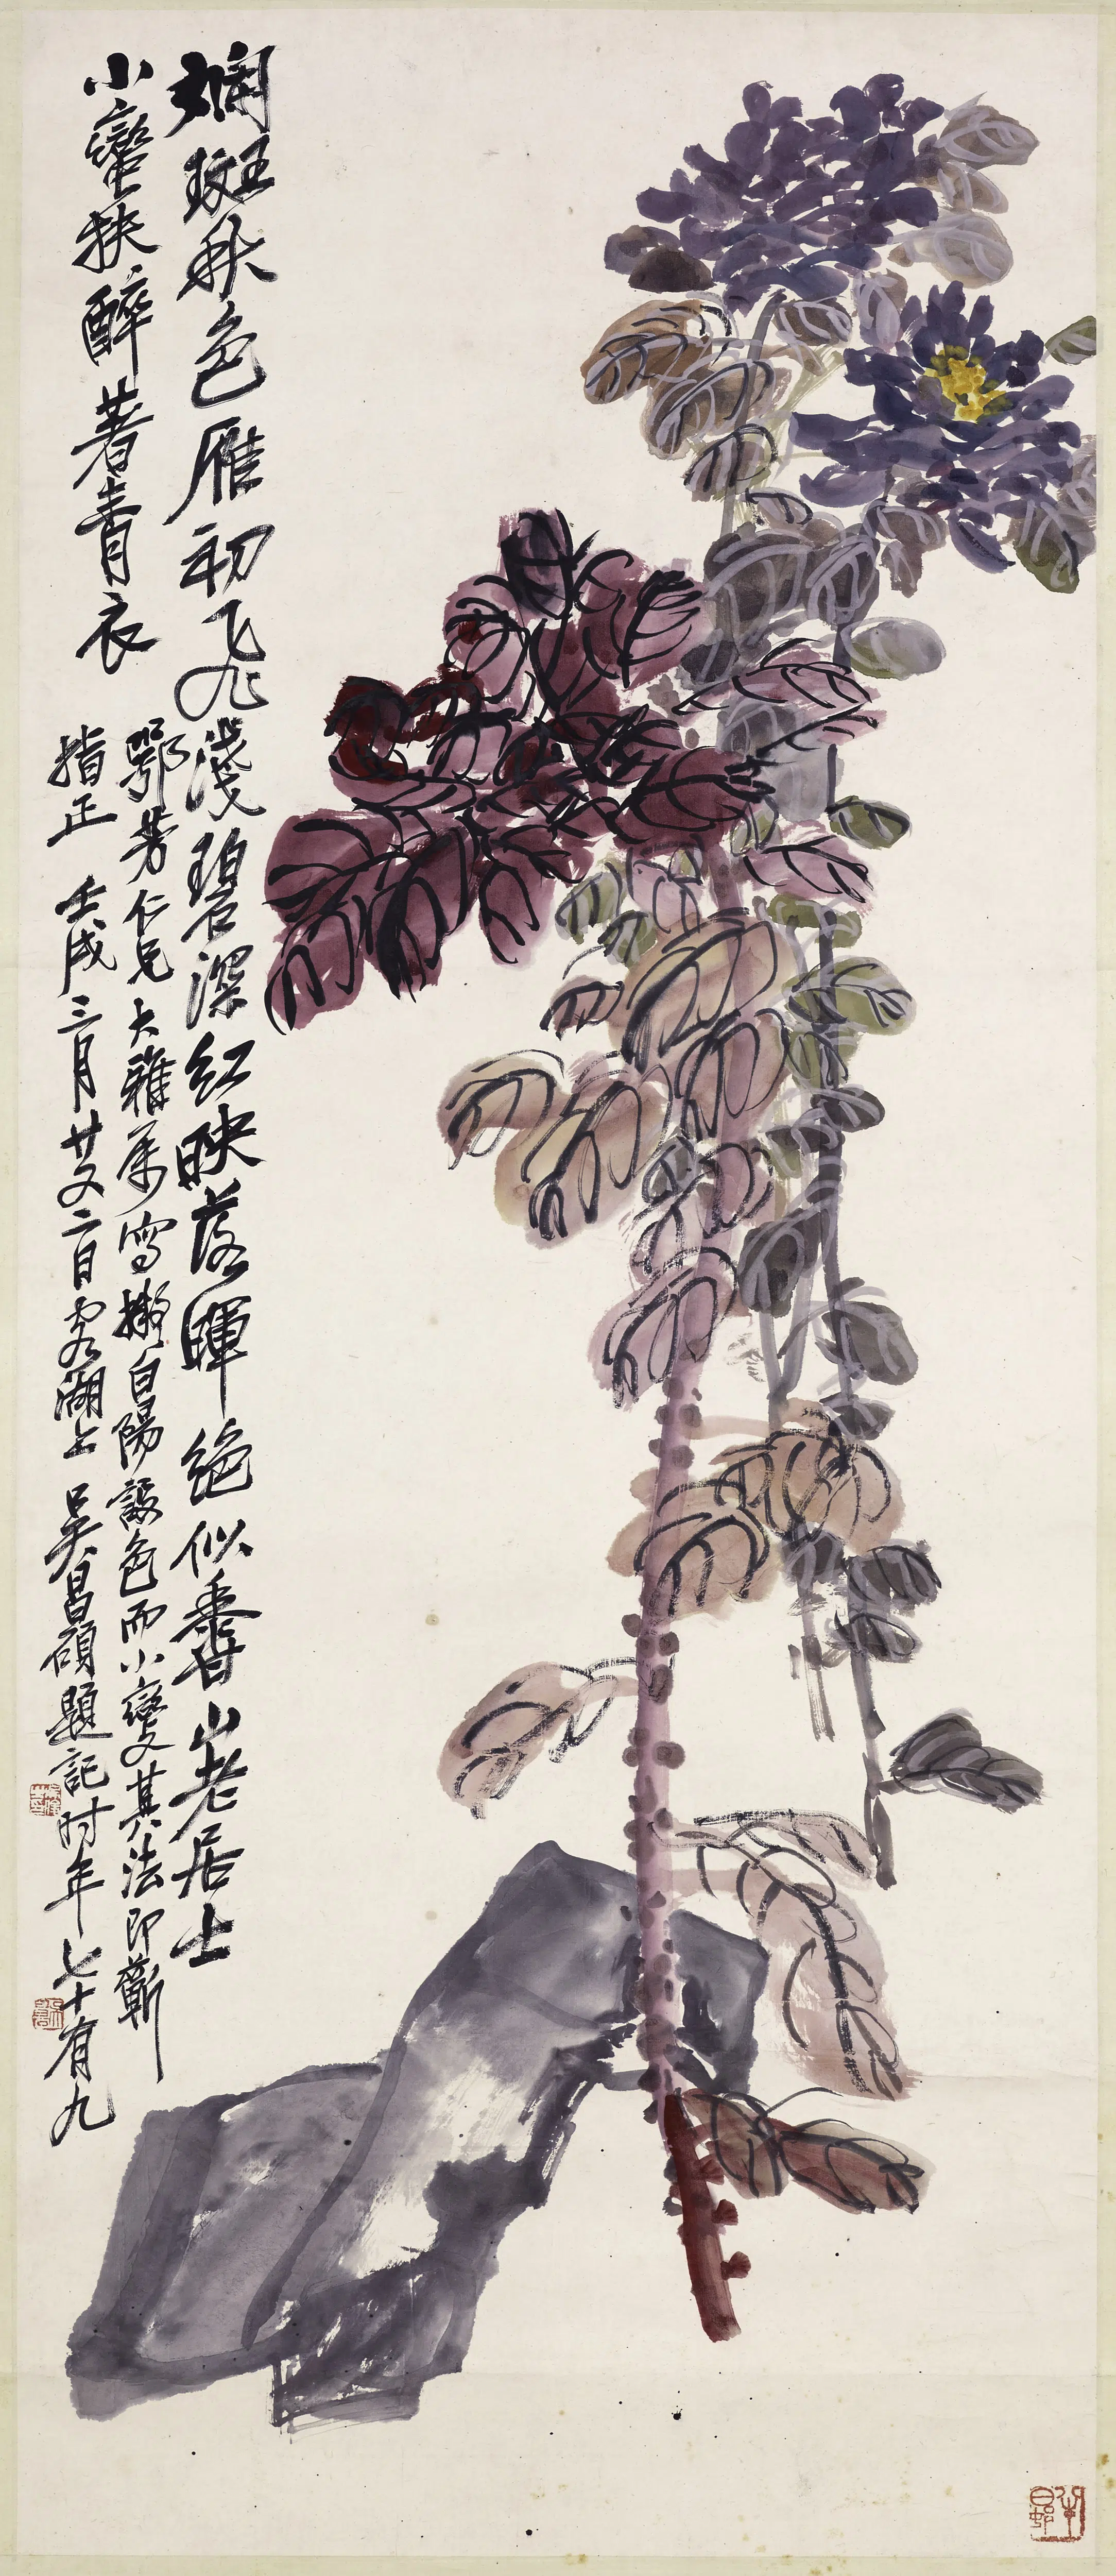 斕斑秋色雁初飛淺碧深紅映落暉絕似香山老居士
小蠻扶醉著青衣
鄂芳仁兄大雅屬寫擬白陽設色而小變其法即蘄
指正 壬戌三月廿又二日客湖上 吳昌碩題記時年七十有九
半日邨